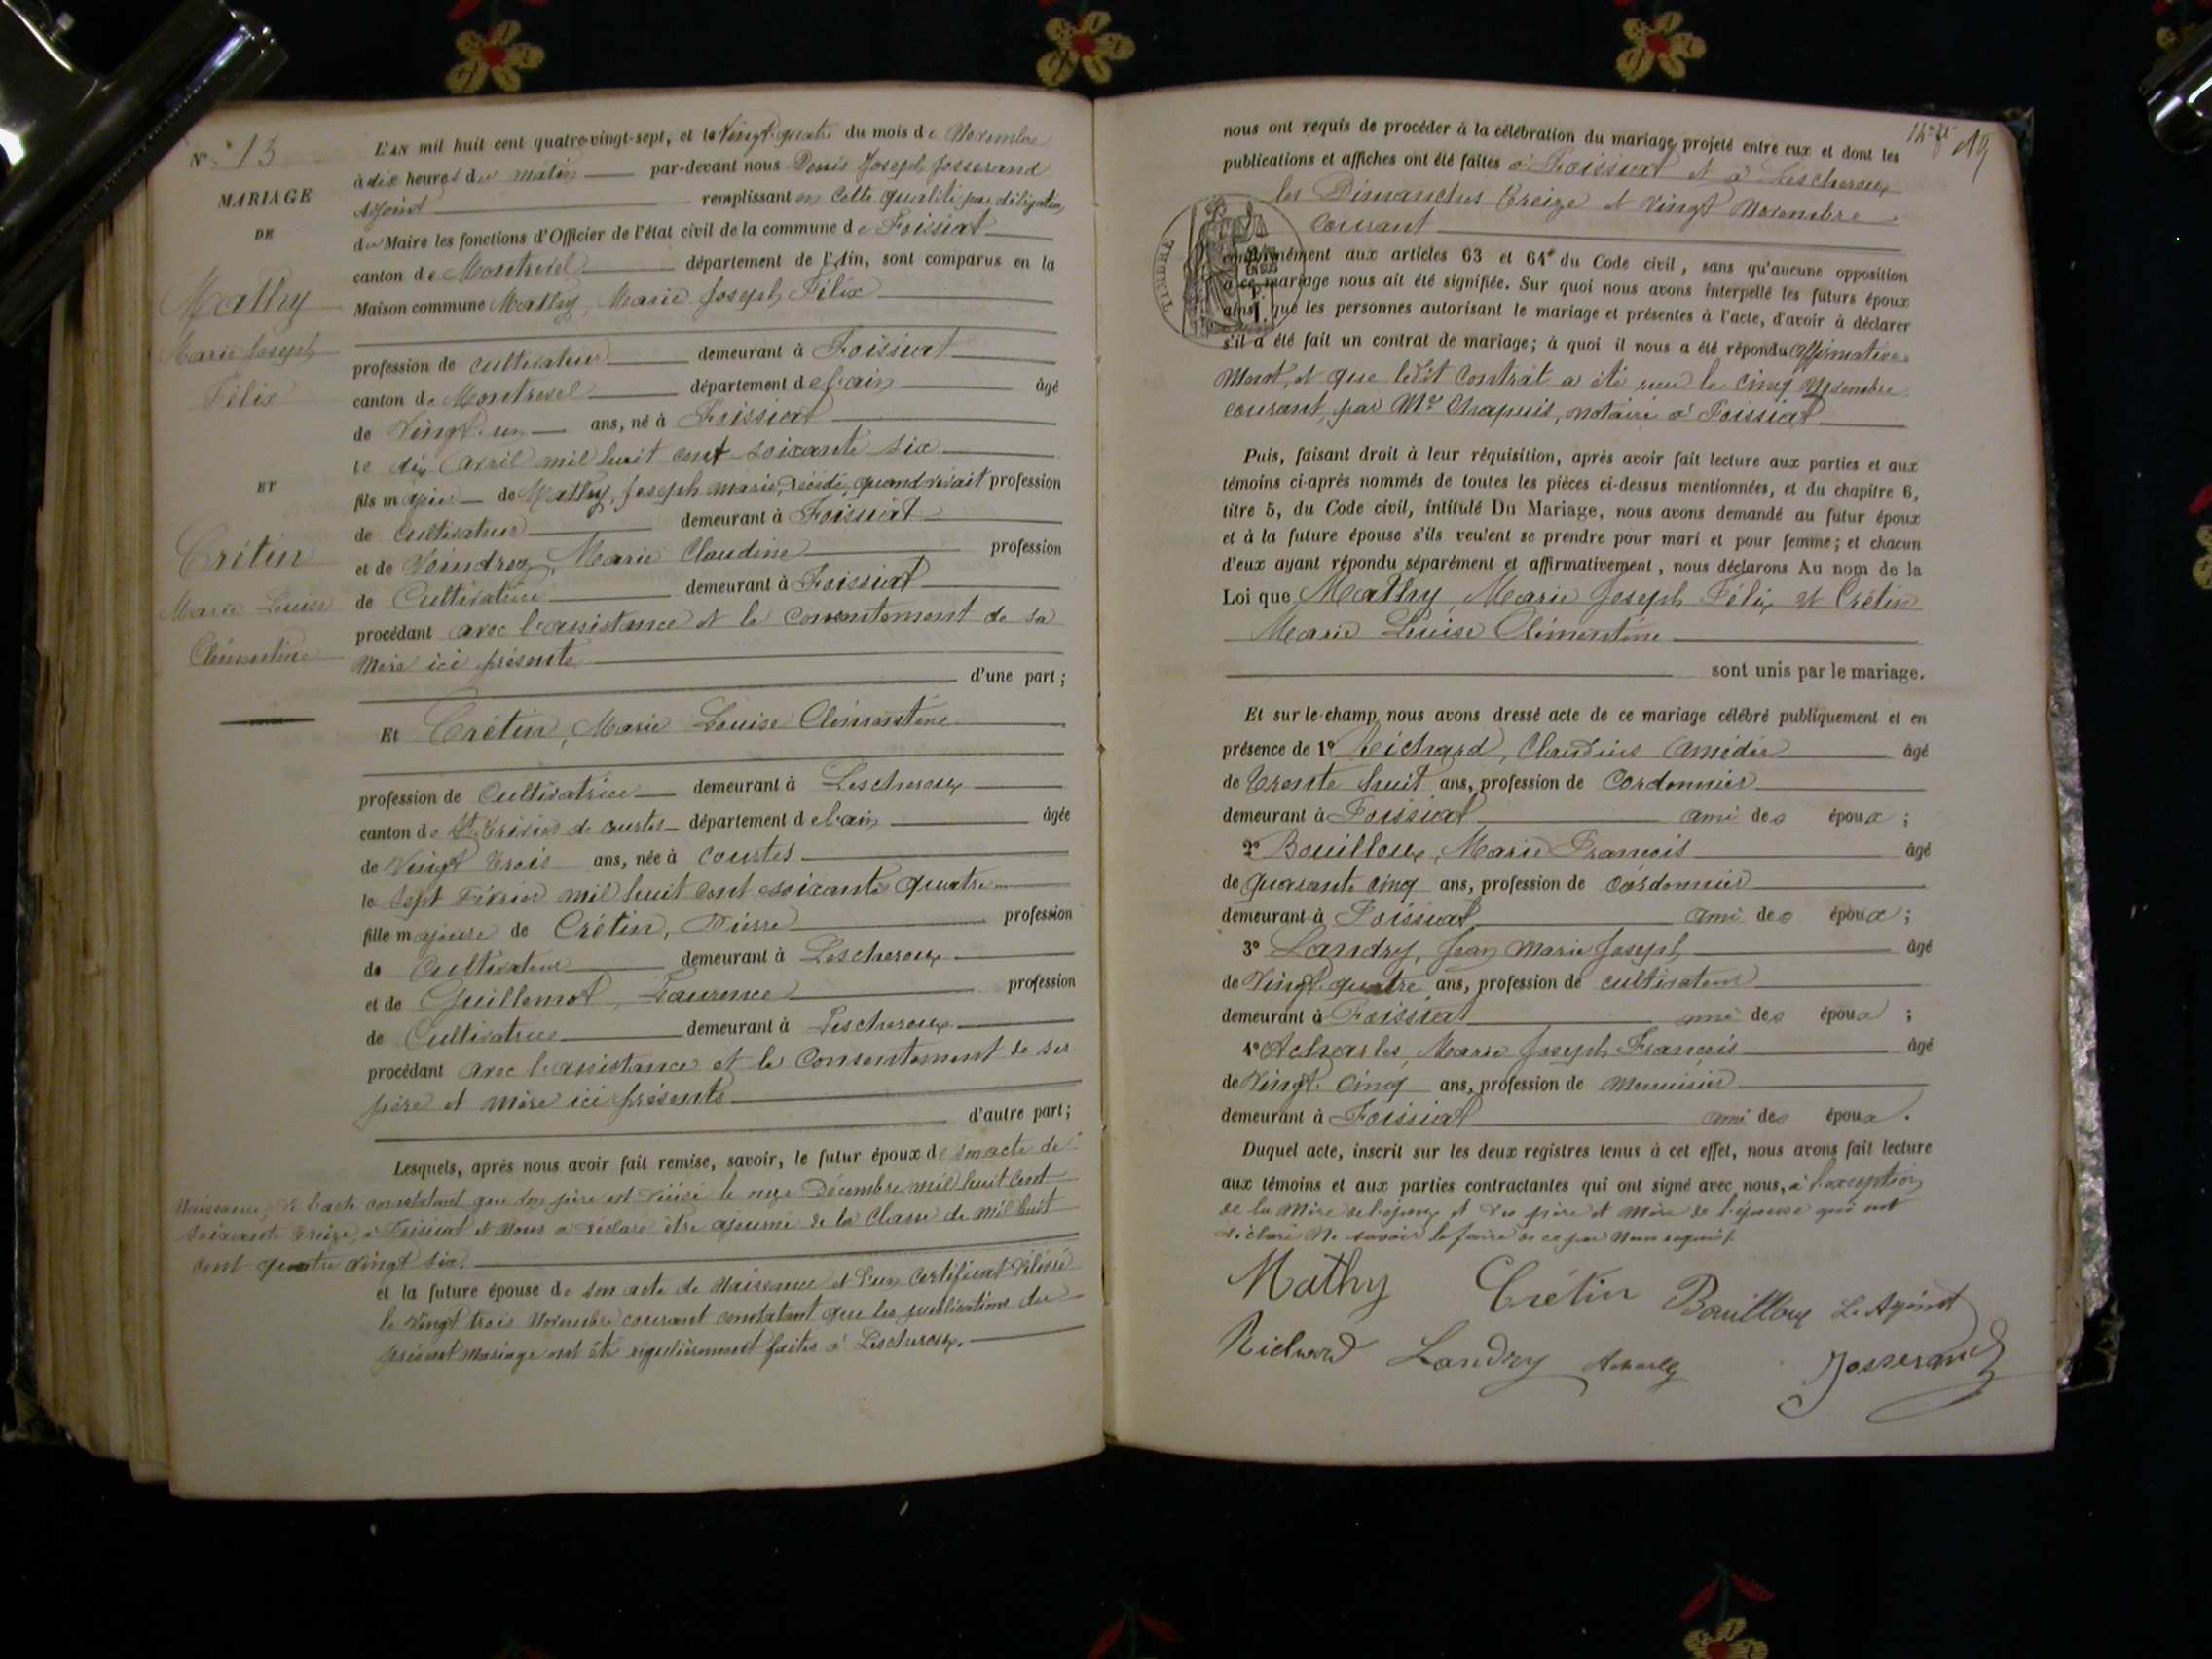 N° 13
MARIAGE
DE
Mathy
Marie Joseph
Félix
ET
Crétin
Marie Louise
Clémentine
L'AN mil huit cent quatre-vingt-sept, et le Vingt quatre du mois de Novembre
à dix heures du matin par-devant nous Denis Joseph Josserand
Adjoint remplissant en cette qualité par délégation
du Maire les fonctions d'Officier de l'état civil de la commune de Foissiat
canton de Montrevel département de l'Ain, sont comparus en la
Maison commune Mathy, Marie Joseph Félix
profession de cultivateur demeurant à Foissiat
canton de Montrevel département de l'ain âgé
de Vingt un ans, né à Foissiat
le dix avril mil huit cent soixante six
fils majeur de Mathy, Joseph Marie, décédé, quand vivait profession
de cultivateur demeurant à Foissiat
et de Voindroz, Marie Claudine profession
de Cultivatrice demeurant à Foissiat
procédant avec l'assistance et le consentement de sa
mère ici présente
d'une part;
Et Crétin, Marie Louise Clémentine
profession de Cultivatrice demeurant à Lescheroux
canton de St Trivier de courtes département de l'ain âgée
de Vingt trois ans, née à Courtes
le sept Février mil huit cent soixante quatre
fille majeure de Crétin, Pierre profession
de Cultivateur demeurant à Lescheroux
et de Guillemot, Laurence profession
de Cultivatrice demeurant à Lescheroux
procédant avec l'assistance et le Consentement de ses
père et mère ici présents
d'autre part;
Lesquels, après nous avoir fait remise, savoir, le futur époux de son acte de
Naissance, de l'acte constatant que son père est décédé le onze Décembre mil huit cent
soixante treize, à Foissiat et nous a déclaré être ajourné de la Classe de mil huit
cent quatre vingt six.
et la future épouse de son acte de Naissance et d'un Certificat délivré
le Vingt trois Novembre courant constatant que les publications du
présent mariage ont été régulièrement faites à Lescheroux.
19
nous ont requis de procéder à la célébration du mariage projeté entre eux et dont les
publications et affiches ont été faites à Foissiat et à Lescheroux
les Dimanches treize et vingt Novembre
courant
TIMBRE
conformément aux articles 63 et 64 du Code civil, sans qu'aucune opposition
à ce mariage nous ait été signifiée. Sur quoi nous avons interpellé les futurs époux
ainsi que les personnes autorisant le mariage et présentes à l'acte, d'avoir à déclarer
s'il a été fait un contrat de mariage; à quoi il nous a été répondu affirmative-
ment, et que ledit contrat a été reçu le cinq Novembre
courant, par Me Chapuis, notaire à Foissiat
Puis, faisant droit à leur réquisition, après avoir fait lecture aux parties et aux
témoins ci-après nommés de toutes les pièces ci-dessus mentionnées, et du chapitre 6,
titre 5, du Code civil, intitulé Du Mariage, nous avons demandé au futur époux
et à la future épouse s'ils veulent se prendre pour mari et pour femme; et chacun
d'eux ayant répondu séparément et affirmativement, nous déclarons Au nom de la
Loi que Mathy, Marie Joseph Félix et Crétin
Marie Louise Clémentine
sont unis par le mariage.
Et sur-le-champ nous avons dressé acte de ce mariage célébré publiquement et en
présence de 1° Richard, Claudius Amédée âgé
de trente huit ans, profession de Cordonnier
demeurant à Foissiat ami des époux;
2° Bouilloux, Marie François âgé
de quarante cinq ans, profession de Cordonnier
demeurant à Foissiat ami des époux;
3° Landry, Jean Marie Joseph âgé
de Vingt quatre ans, profession de cultivateur
demeurant à Foissiat ami des époux;
4° Acharles, Marie Joseph François âgé
de Vingt cinq ans, profession de Menuisier
demeurant à Foissiat ami des époux.
Duquel acte, inscrit sur les deux registres tenus à cet effet, nous avons fait lecture
aux témoins et aux parties contractantes qui ont signé avec nous, à l'exception
de la mère de l'époux et des père et mère de l'épouse qui ont
déclaré ne savoir le faire de ce par nous requis.
Mathy Crétin Bouilloux L'Adjoint
Richard Landry Acharles Josserand